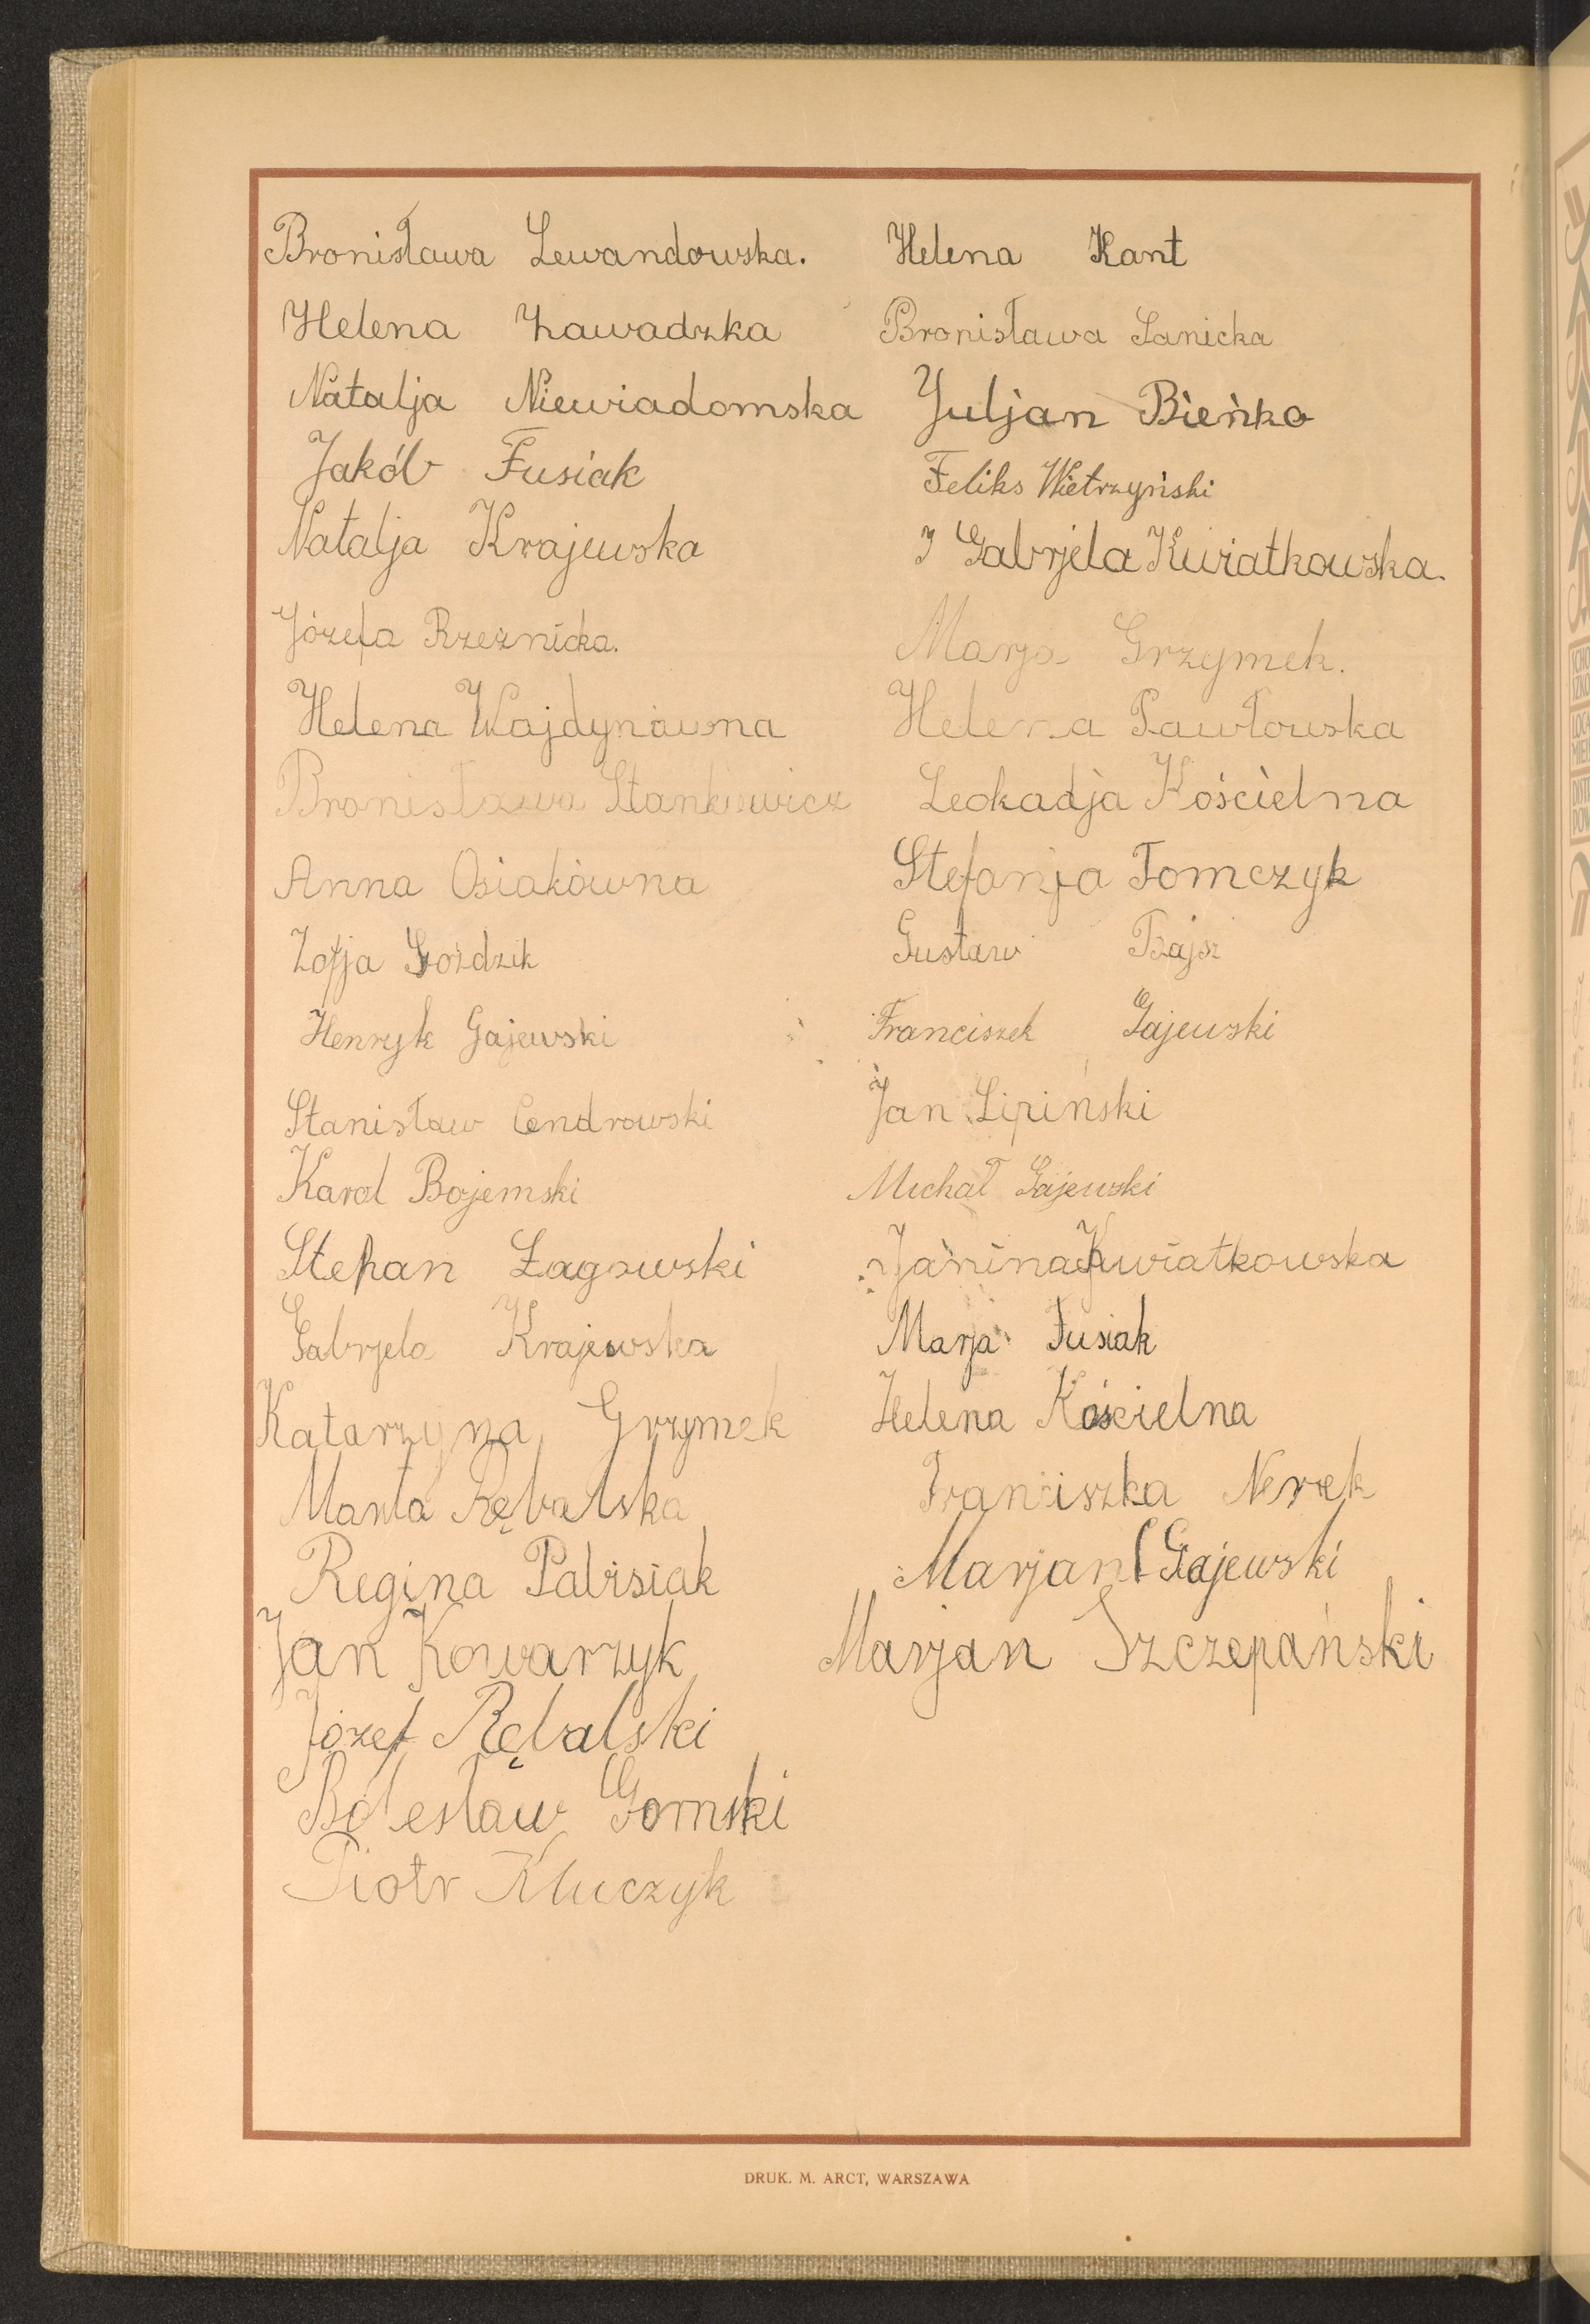 Bronisława Lewandowska.
Helena Zawadzka
Natalja Niewiadomska
Jakób Fusiak
Natalja Krajewska
Józefa Rzeźnicka.
Helena Wajdynówna
Bronisława Stankiewicz
Anna Osiakówna
Zofja Goździk
Henryk Gajewski
Stanisław Cendrowski
Karol Bojemski
Stefan Łagowski
Gabrjela Krajewska
Katarzyna Grzymek
Marta Rębalska
Regina Pabisiak
Jan Kowarzyk
Józef Rębalski
Bolesław Gornski
Piotr Kluczyk
Helena Kant
Bronisława Sanicka
Juljan Bieńko
Feliks Wietrzyński
J Gabrjela Kwiatkowska.
Marja Grzymek.
Helena Pawłowska
Leokadja Kościelna
Stefanja Tomczyk
Gustaw
Franciszek Gajewski
Jan Lipiński
Michał Gajewski
Janina Kwiatkowska
Marja Fusiak
Helena Kościelna
Franciszka Nerek
Marjan Gajewski
Marjan Szczepański
DRUK. M. ARCT, WARSZAWA